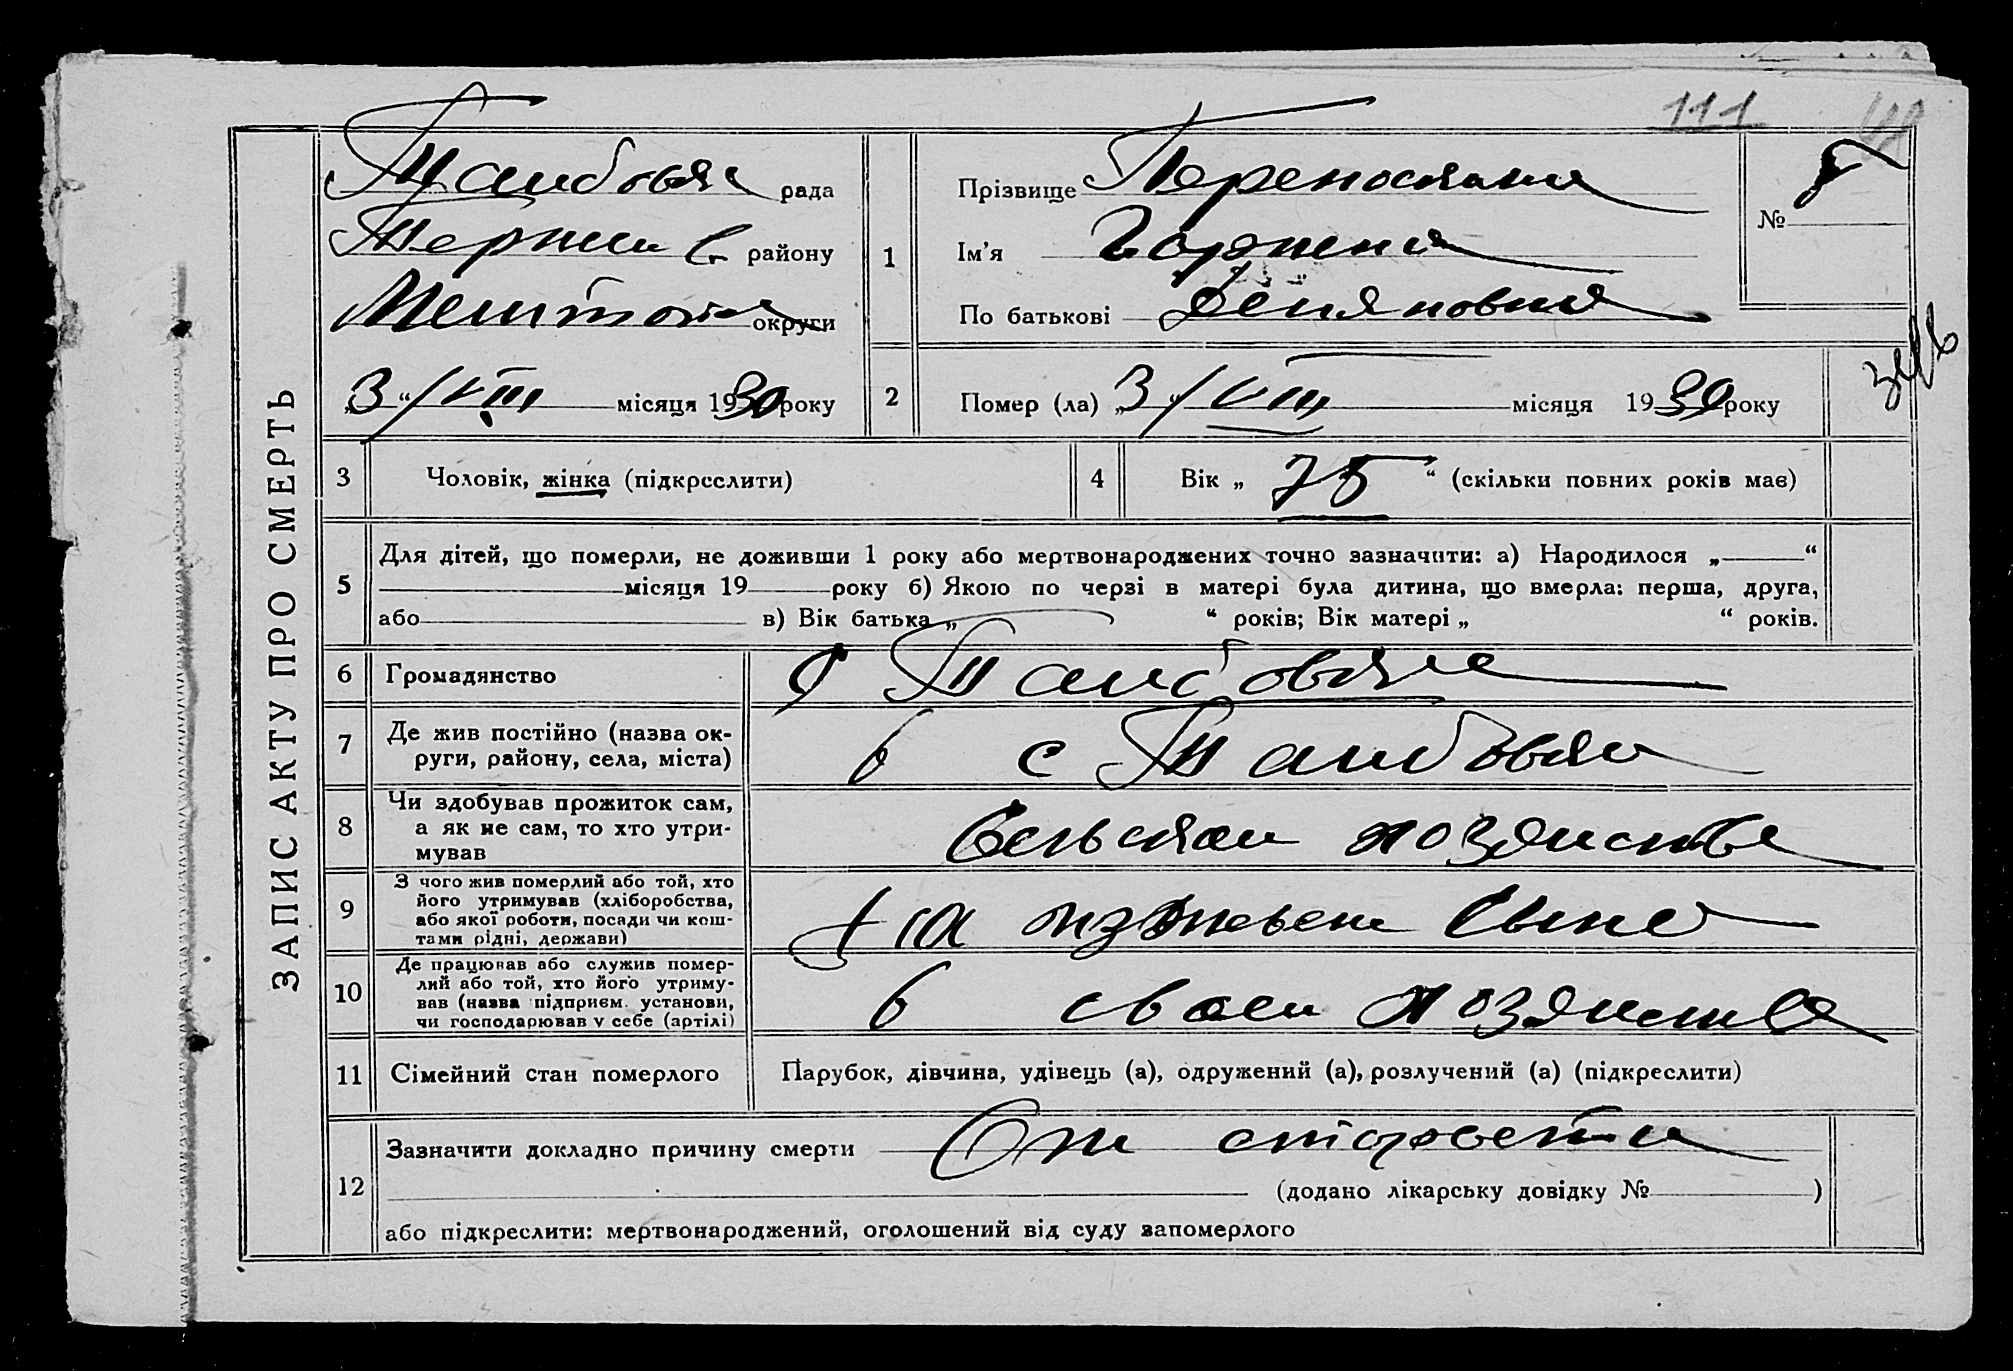 111
ЗАПИС АКТУ ПРО СМЕРТЬ
Тамбовка рада
району
округи
„3“/VIII місяця 1930 року
1
Прізвище
Ім'я
По батькові Демяновна
№
2
Помер (ла) „3“/VIII місяця 1930 року
3
Чоловік, жінка (підкреслити)
4
Вік „75“ (скільки повних років має)
5
Для дітей, що померли, не доживши 1 року або мертвонароджених точно зазначити: а) Народилося „ “
місяця 19 року б) Якою по черзі в матері була дитина, що вмерла: перша, друга,
або в) Вік батька „ “ років; Вік матері „ “ років.
6
Громадянство
Тамбовка
7
Де жив постійно (назва ок-
руги, району, села, міста)
в с Тамбовка
8
Чи здобував прожиток сам,
а як не сам, то хто утри-
мував
9
З чого жив померлий або той, хто
його утримував (хліборобства,
або якої роботи, посади чи кош-
тами рідні, держави)
на
10
Де працював або служив помер-
лий або той, хто його утриму-
вав (назва підприєм. установи,
чи господарював у себе (артілі)
в своем хозяиства
11
Сімейний стан померлого
Парубок, дівчина, удівець (а), одружений (а), розлучений (а) (підкреслити)
12
Зазначити докладно причину смерти От старости
(додано лікарську довідку № )
або підкреслити: мертвонароджений, оголошений від суду запомерлого